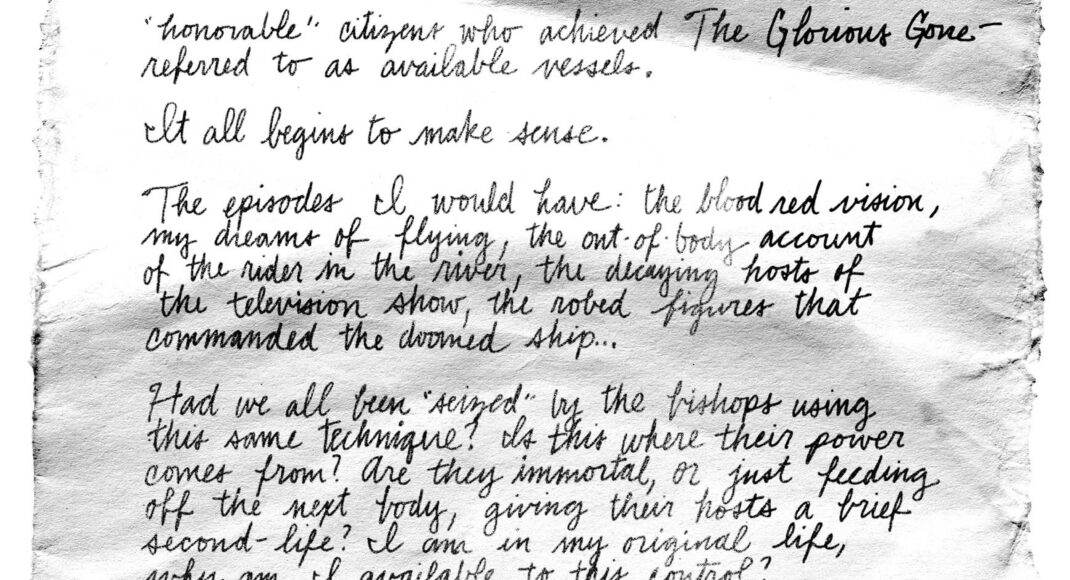 "honorable" citizens who achieved The Glorious Gone—
referred to as available vessels.
It all begins to make sense.
The episodes I would have: the blood red vision,
my dreams of flying, the out-of-body account
of the rider in the river, the decaying hosts of
the television show, the robed figures that
commanded the doomed ship...
Had we all been "seized" by the bishops using
this same technique? Is this where their power
comes from? Are they immortal, or just feeding
off the next body, giving their hosts a brief
second-life? I am in my original life,
why am I available to this control?